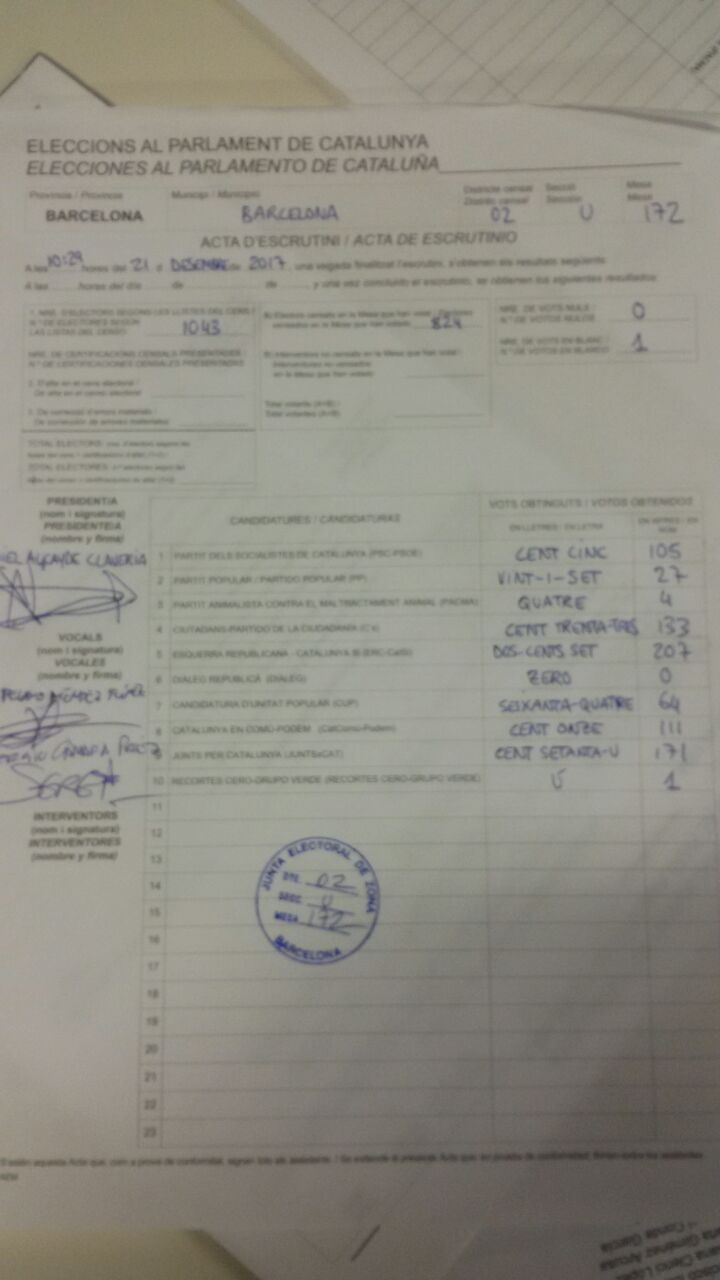 ELECCIONS AL PARLAMENT DE CATALUNYA
ELECCIONES AL PARLAMENTO DE CATALUÑA
Província / Provincia Municipi / Municipio Districte censal Secció Mesa
Distrito censal Sección Mesa
BARCELONA BARCELONA 02 U 172
ACTA D'ESCRUTINI / ACTA DE ESCRUTINIO
A les 10:29 hores del 21 d DESEMBRE de 2017, una vegada finalitzat l'escrutini, s'obtenen els resultats següents:
A las hores del día de de , y una vez concluido el escrutinio, se obtienen los siguientes resultados:
1. NRE. D'ELECTORS SEGONS LES LLISTES DEL CENS /
N.º DE ELECTORES SEGÚN
LAS LISTAS DEL CENSO 1043
NRE. DE CERTIFICACIONS CENSALS PRESENTADES /
N.º DE CERTIFICACIONES CENSALES PRESENTADAS
2. D'alta en el cens electoral /
De alta en el censo electoral
3. De correcció d'errors materials /
De corrección de errores materiales
A) Electors censats en la Mesa que han votat /
censados en la Mesa que han votado 824
B) Interventors no censats en la Mesa que han votat /
Interventores no censados
en la Mesa que han votado
Total votants (A+B) /
Total votantes (A+B)
NRE. DE VOTS NULS /
N.º DE VOTOS NULOS 0
NRE. DE VOTS EN BLANC /
N.º DE VOTOS EN BLANCO 1
TOTAL ELECTORS
TOTAL ELECTORES
PRESIDENT/A
(nom i signatura)
PRESIDENTE/A
(nombre y firma)
ALCAYDE CLAVERIA
VOCALS
(nom i signatura)
VOCALES
(nombre y firma)
INTERVENTORS
(nom i signatura)
INTERVENTORES
(nombre y firma)
CANDIDATURES / CANDIDATURAS VOTS OBTINGUTS / VOTOS OBTENIDOS
EN LLETRES / EN LETRA
1 PARTIT DELS SOCIALISTES DE CATALUNYA (PSC-PSOE) CENT CINC 105
2 PARTIT POPULAR / PARTIDO POPULAR (PP) VINT-I-SET 27
3 PARTIT ANIMALISTA CONTRA EL MALTRACTAMENT ANIMAL (PACMA) QUATRE 4
4 CIUTADANS-PARTIDO DE LA CIUDADANÍA (C's) CENT TRENTA-TRES 133
5 ESQUERRA REPUBLICANA - CATALUNYA SÍ (ERC-CatSí) DOS-CENTS SET 207
6 DIÀLEG REPUBLICÀ (DIÀLEG) ZERO 0
7 CANDIDATURA D'UNITAT POPULAR (CUP) SEIXANTA-QUATRE 64
8 CATALUNYA EN COMÚ-PODEM (CatComú-Podem) CENT ONZE 111
9 JUNTS PER CATALUNYA (JUNTSxCAT) CENT SETANTA-U 171
10 RECORTES CERO-GRUPO VERDE (RECORTES CERO-GRUPO VERDE) U 1
11
12
13
14
15
16
17
18
19
20
21
22
23
JUNTA ELECTORAL DE ZONA
DTE. 02
SECC. U
MESA 172
BARCELONA